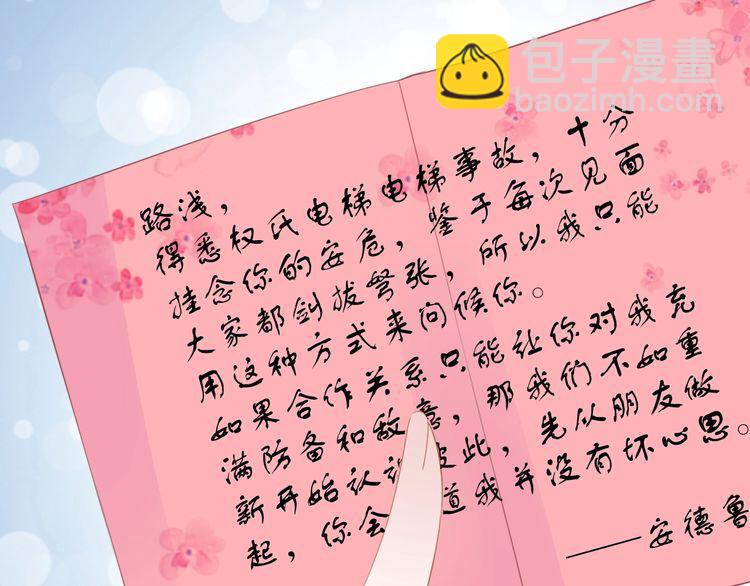 包子漫畫
baozimh.com
路浅，
得悉权氏电梯电梯事故，十分
挂念你的安危，鉴于每次见面
大家都剑拔弩张，所以我只能
用这种方式来问候你。
如果合作关系只能让你对我充
满防备和敌意，那我们不如重
新开始认识彼此，先从朋友做
起，你会 道我并没有坏心思。
——安德鲁